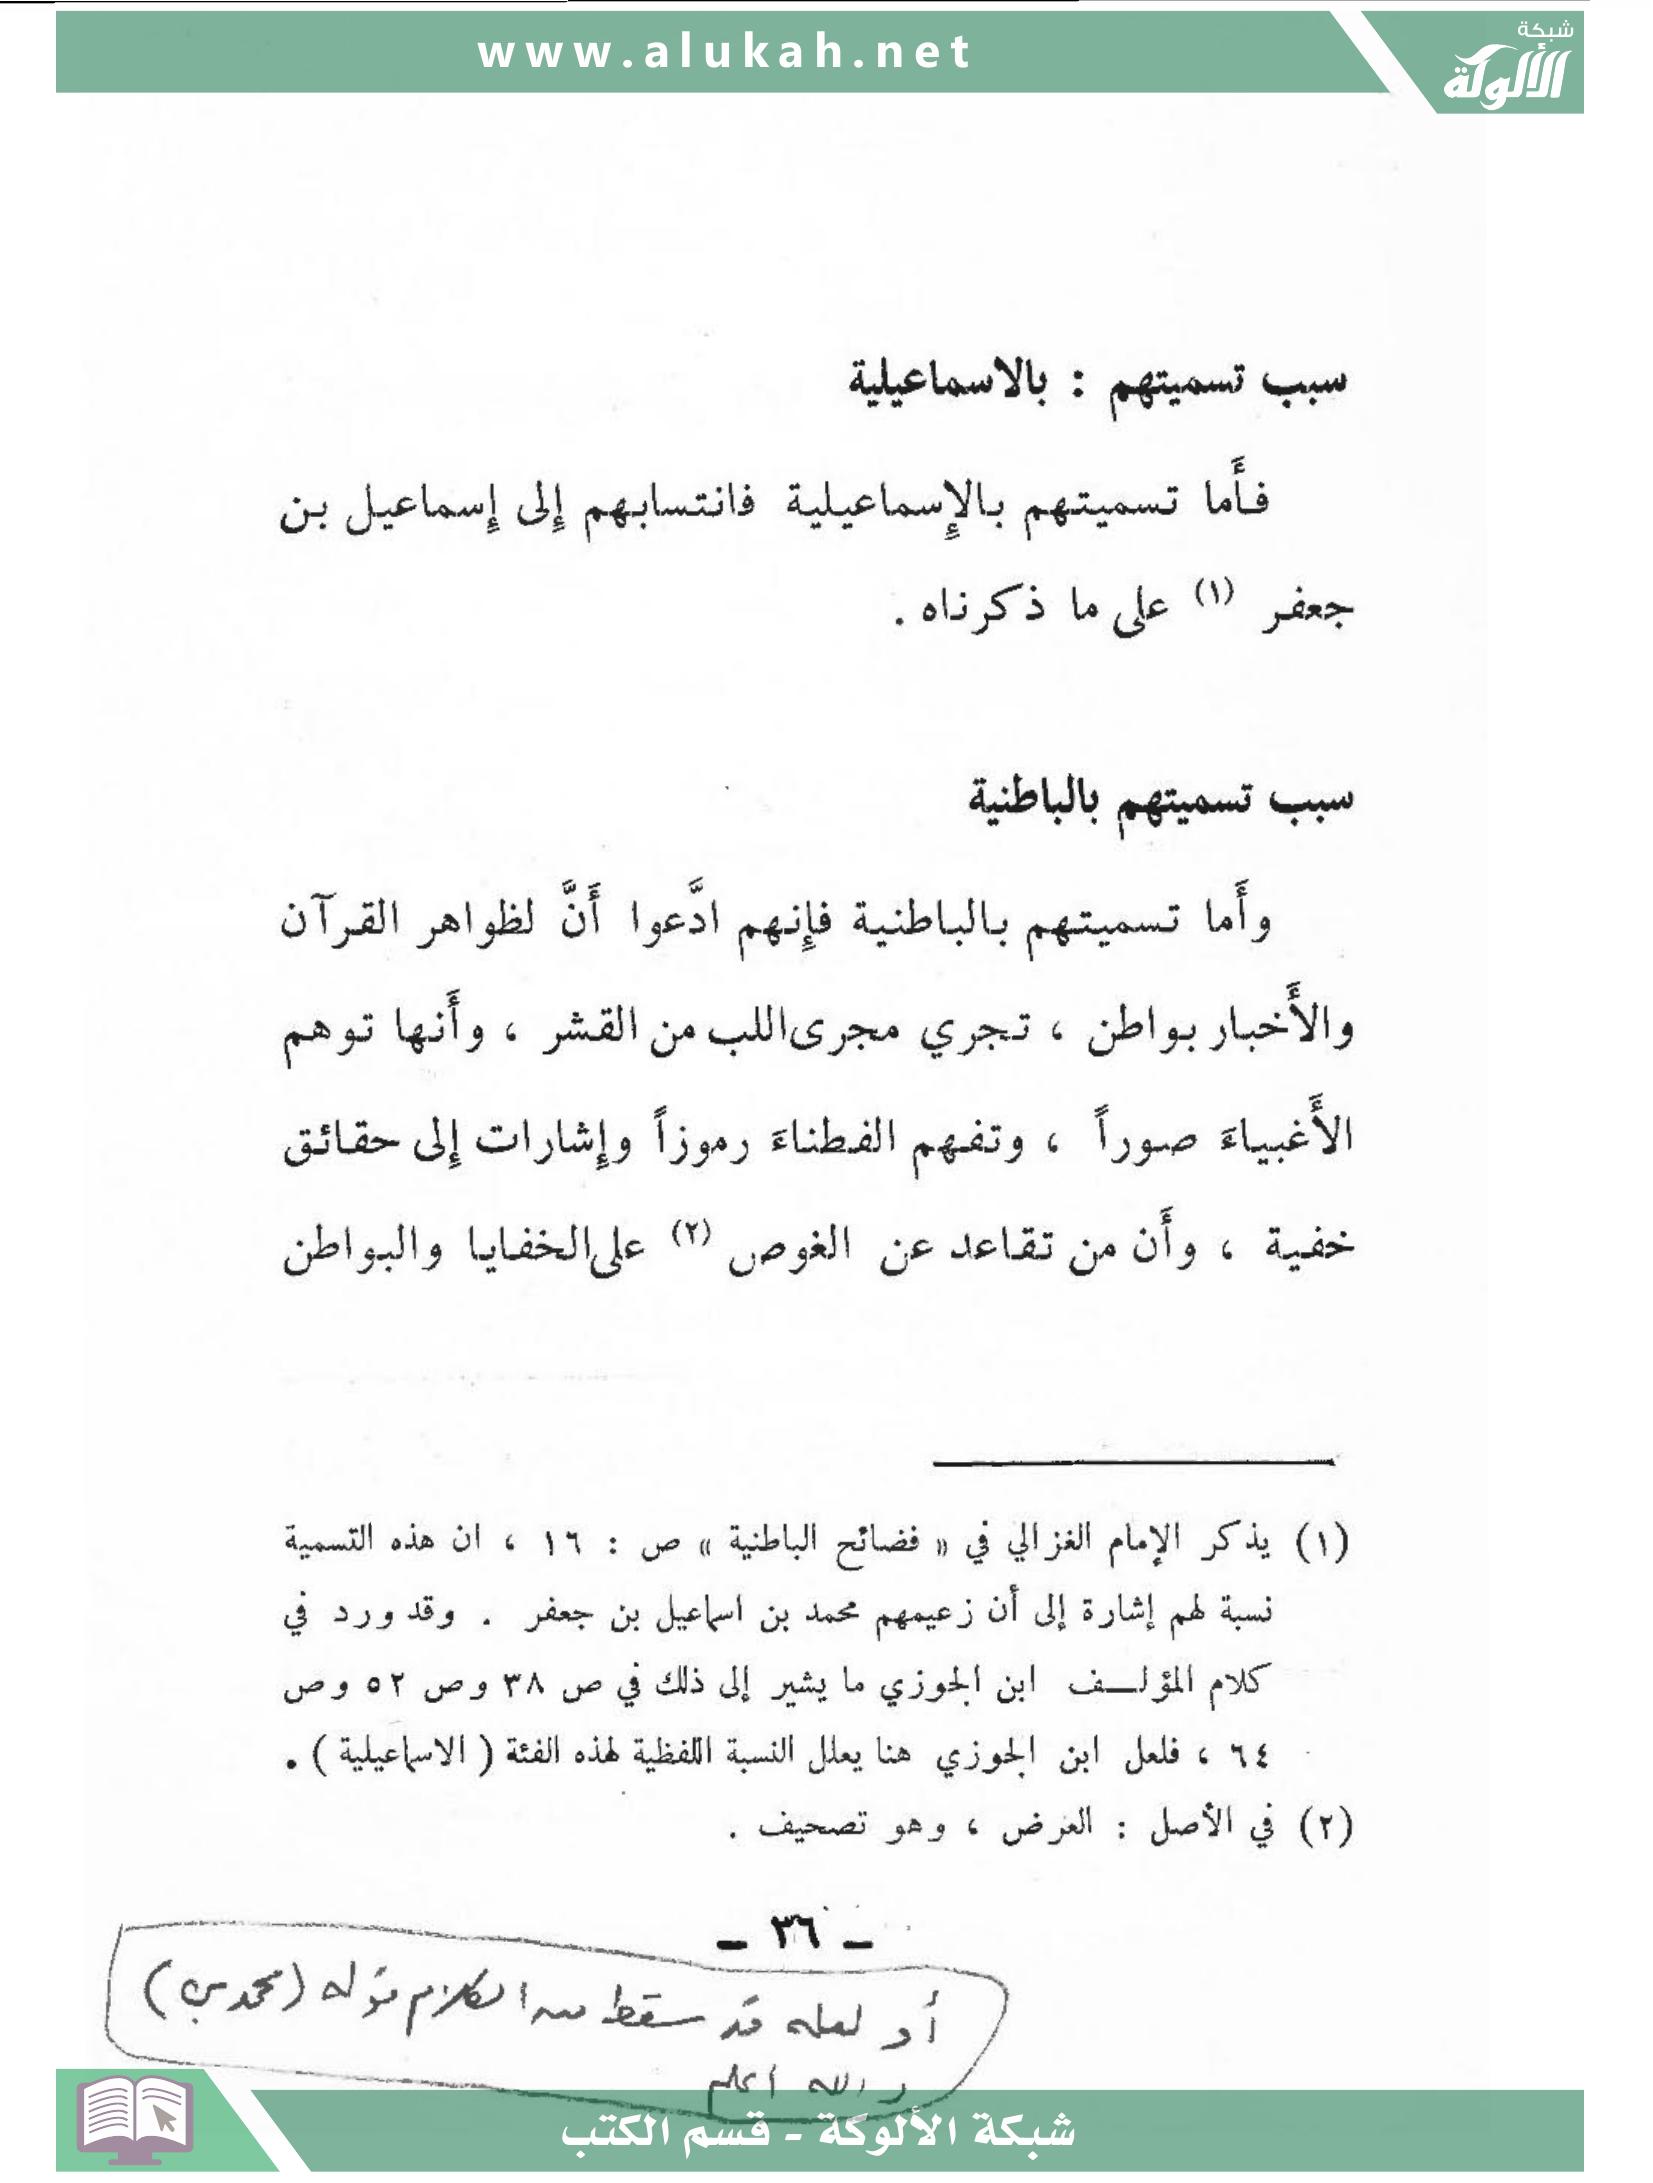 www.alukah.net
شبكة
الألوكة
سبب تسميتهم : بالاسماعيلية
فأَما تسميتهم بالإِسماعيلية فانتسابهم إِلى إِسماعيل بن
جعفر (١) على ما ذكرناه .
سبب تسميتهم بالباطنية
وأَما تسميتهم بالباطنية فإِنهم ادَّعوا أَنَّ لظواهر القرآن
والأَخبار بواطن ، تجري مجرى اللب من القشر ، وأَنها توهم
الأَغبياءَ صوراً ، وتفهم الفطناءَ رموزاً وإِشارات إِلى حقائق
خفية ، وأَن من تقاعد عن الغوص (٢) على الخفايا والبواطن
(١) يذكر الإمام الغزالي في « فضائح الباطنية » ص : ١٦ ، ان هذه التسمية
نسبة لهم إشارة إلى أن زعيمهم محمد بن اسماعيل بن جعفر . وقد ورد في
كلام المؤلف ابن الجوزي ما يشير إلى ذلك في ص ٣٨ وص ٥٢ وص
٦٤ ، فلعل ابن الجوزي هنا يعلل النسبة اللفظية لهذه الفئة ( الاسماعيلية ) .
(٢) في الأصل : العرض ، وهو تصحيف .
ـ ٣٦ ـ
أو لعله قد سقط من الكلام قوله (محمد بن)
والله أعلم
شبكة الألوكة - قسم الكتب